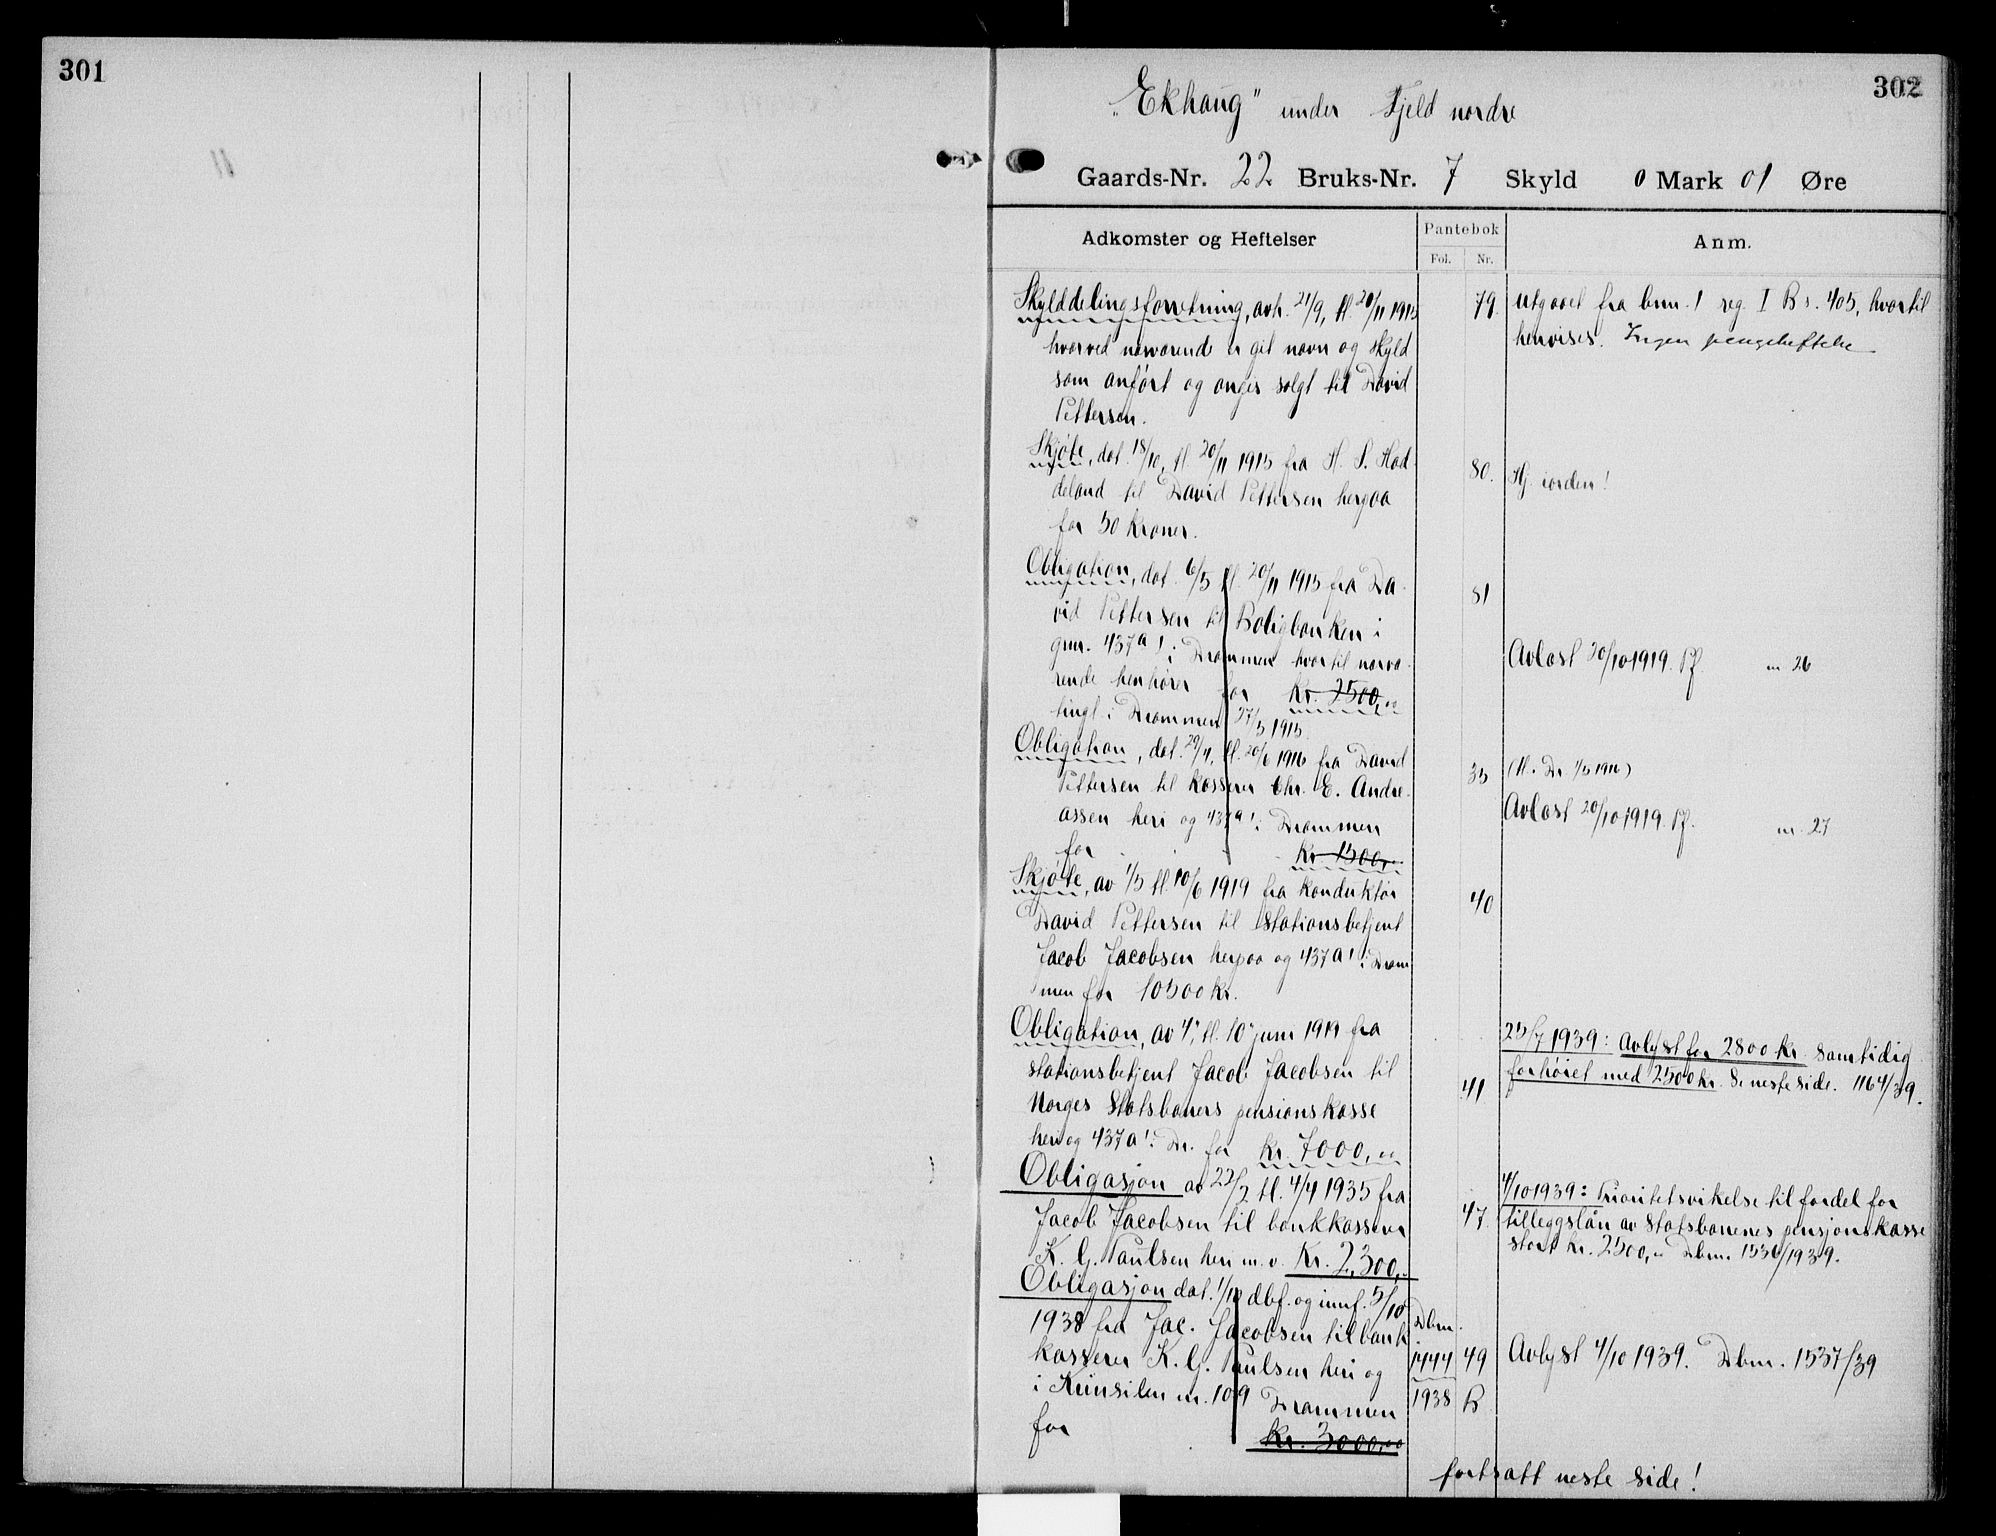 301
302
"Ekhaug" under Fjeld nordre
Gaards-Nr. 22 Bruks-Nr. 7 Skyld 0 Mark 01 Øre
Adkomster og Heftelser
Pantebok
Fol. Nr.
Anm.
Skylddelingsforretning, avh. 21/9, tl. 20/11 1915
hvorved nærværende er git navn og skyld
som anført og angis solgt til David
Pettersen.
79.
Utgaaet fra bnr. 1 reg. I B s. 405, hvortil
henvises. Ingen pengeheftelse
Skjøte, dat. 18/10, tl. 20/11 1915 fra H. S. Had-
deland til David Pettersen herpaa
for 50 kroner.
80.
Hj. jorden!
Obligation, dat. 6/5 tl. 20/11 1915 fra Da-
vid Pettersen til Boligbanken i
gnr. 437a1 i Drammen hvortil nærvæ-
rende henhører for Kr. 2500,00
tingl. i Drammen 27/5 1915
81
Avløst 20/10 1919. Pf. nr. 26
Obligation, dat. 29/4, tl. 20/6 1916 fra David
Pettersen til kasserer Chr. E. Andre-
assen heri og 437a1 i Drammen
for Kr. 1500,-
35
(tl. Dr. 1/5 1916)
Avløst 20/10 1919. Pf. nr. 27
Skjøte, av 1/5 tl. 10/6 1919 fra konduktør
David Pettersen til Stationsbetjent
Jacob Jacobsen herpaa og 437a1 i Dram-
men for 10500 kr.
40
Obligation, av 4, tl. 10 juni 1919 fra
stationsbetjent Jacob Jacobsen til
Norges Statsbaners pensionskasse
heri og 437a1 i Dr. for kr. 7000,00
41
25/7 1939: Avlyst for 2800 kr. samtidig
forhøiet med 2500 kr. Se neste side. 1164/39.
Obligasjon av 22/2 tl. 4/4 1935 fra
Jacob Jacobsen til bankkasserer
K. G. Paulsen heri m. v. Kr. 2,300,-
47.
4/10 1939: Prioritetsvikelse til fordel for
tilleggslån av Statsbanenes pensjonskasse
stort kr. 2500,00 Dbnr. 1536/1939.
Obligasjon dat. 1/10 dbf. og innf. 5/10
1938 fra Jac. Jacobsen til bank-
kasserer K. G. Paulsen heri og
i Keinsilen nr. 109 Drammen
for Kr. 3000,00
Dbnr.
1444
1938
49
B
Avlyst 4/10 1939. Dbnr. 1537/39
fortsatt neste side!